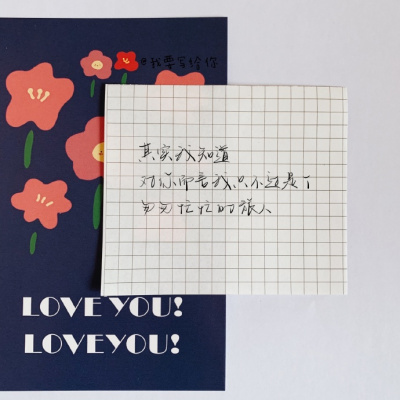 @我要写给你
其实我知道
对你而言我只不过是个
匆匆忙忙的旅人
LOVE YOU!
LOVEYOU!